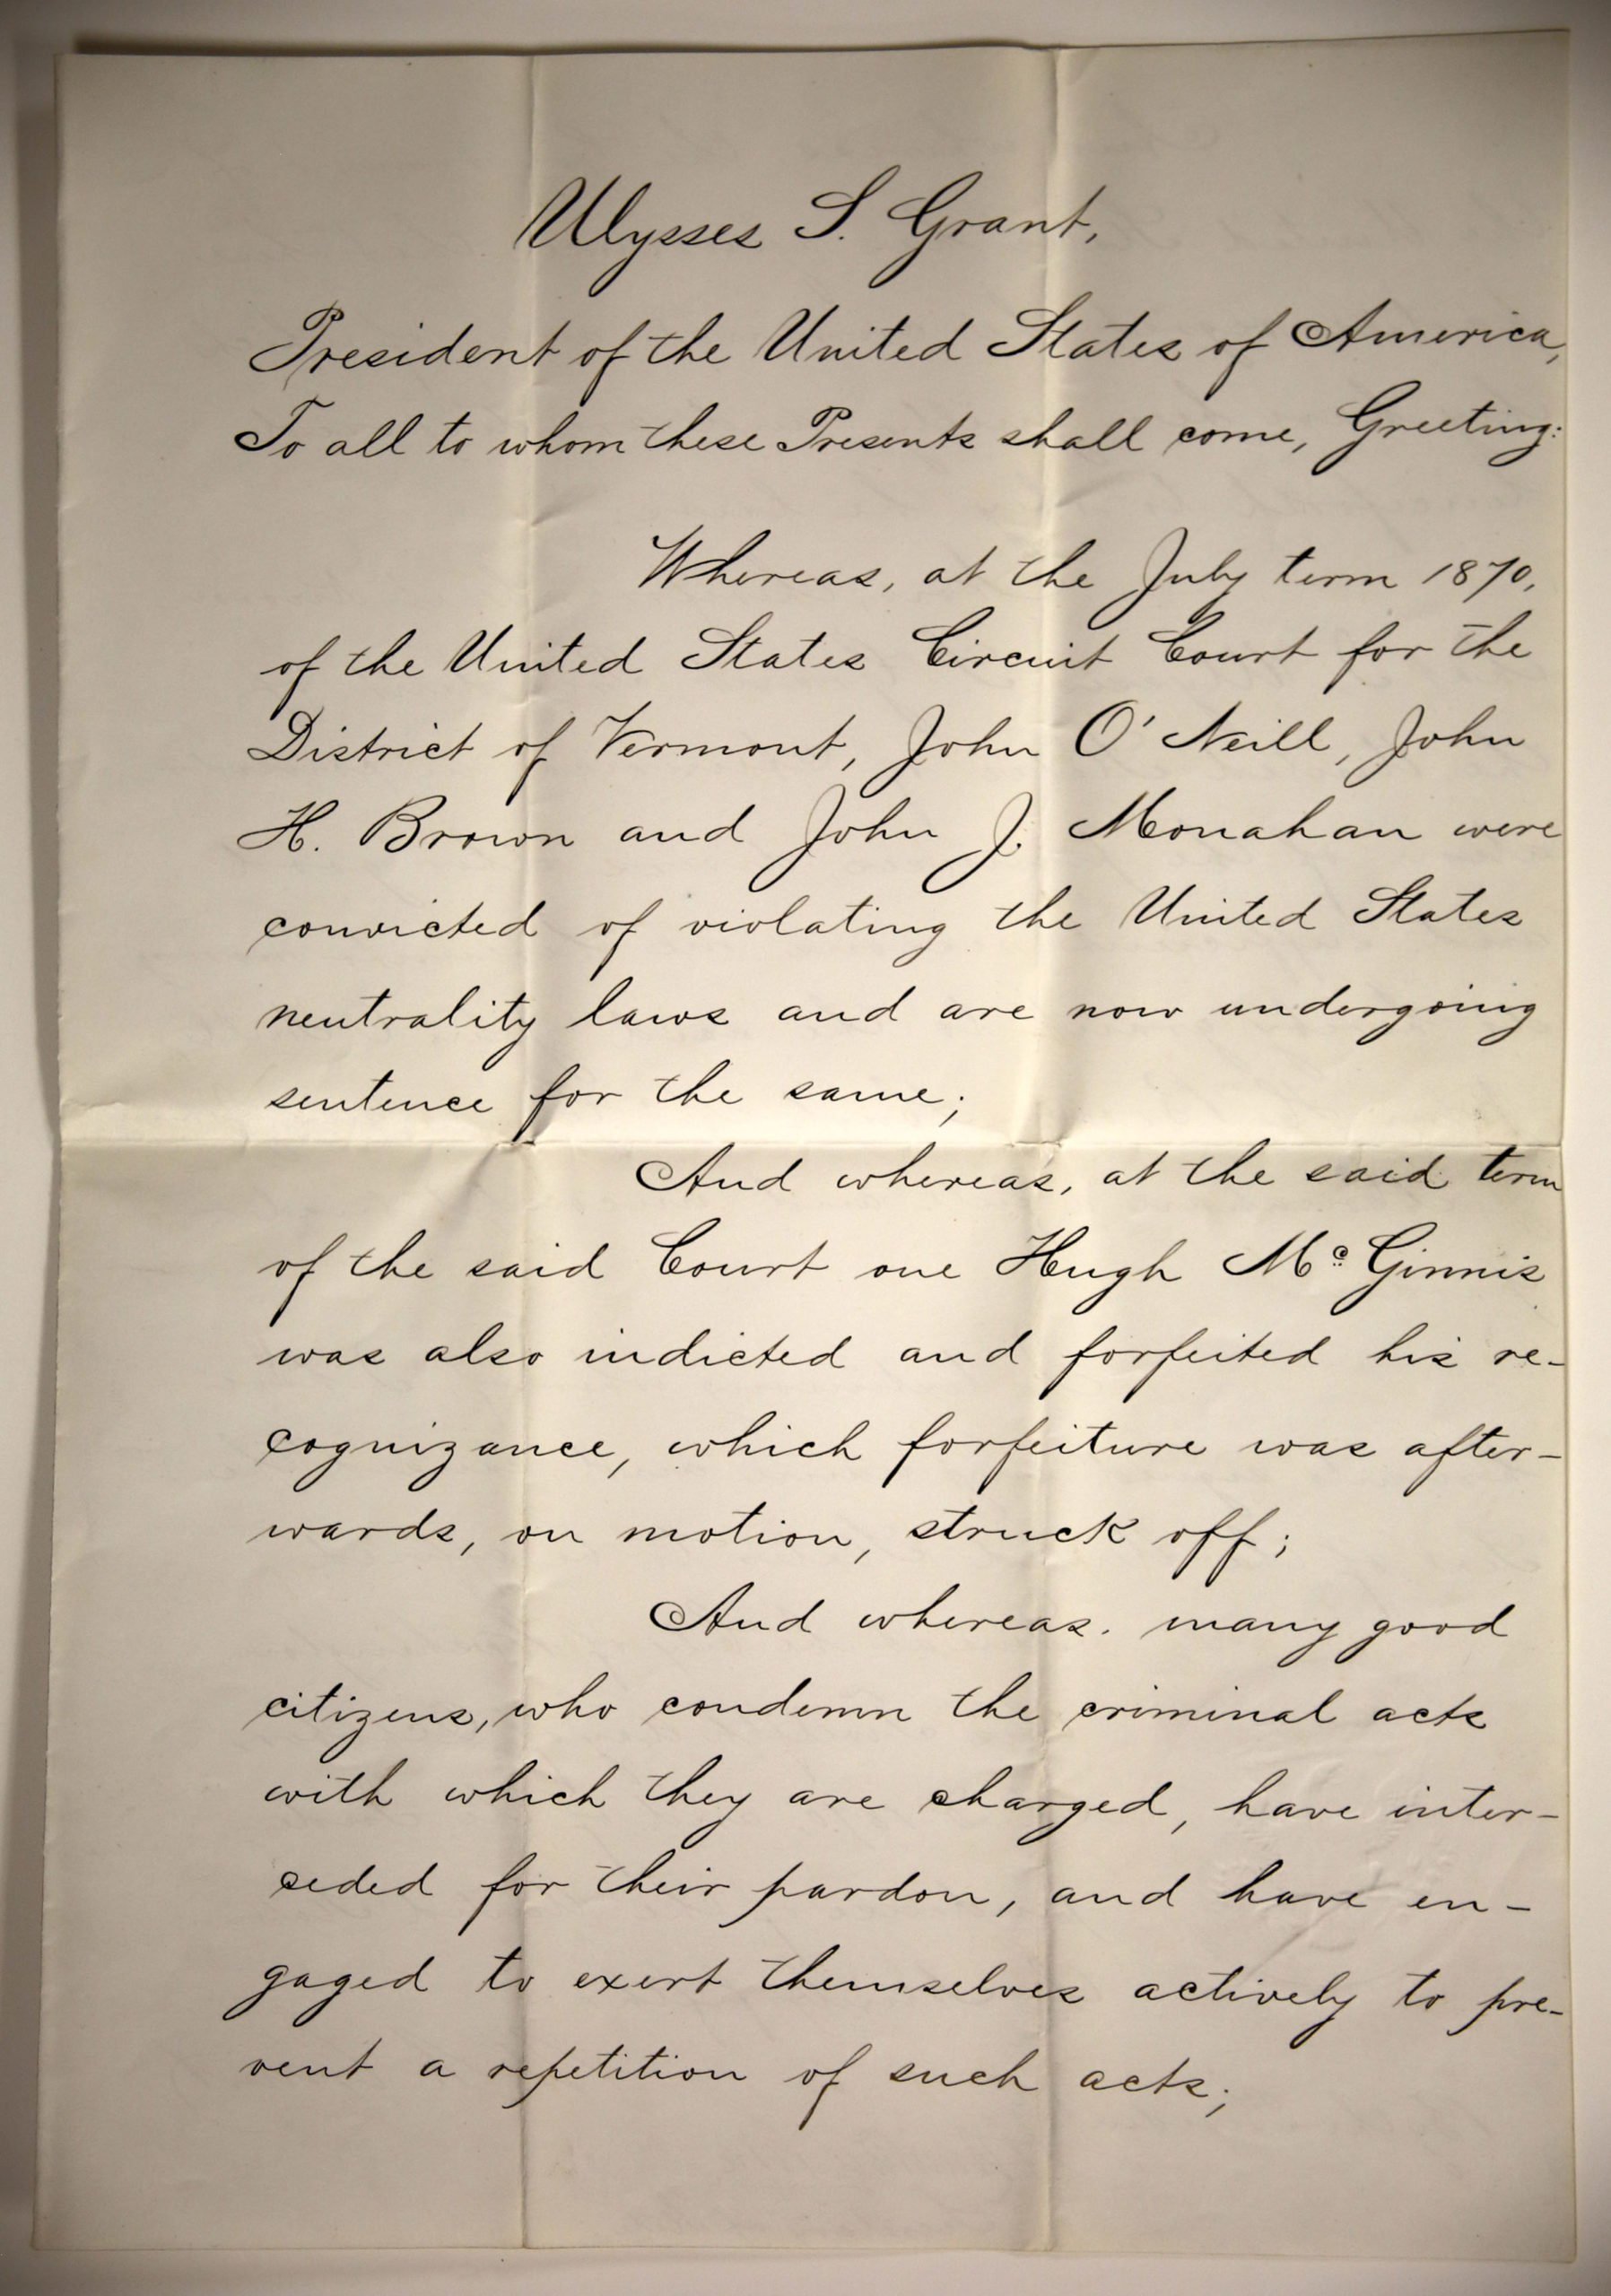 Ulysses S. Grant,
President of the United States of America,
To all to whom these Presents shall come, Greeting:
Whereas, at the July term 1870,
of the United States Circuit Court for the
District of Vermont, John O'Neill, John
H. Brown and John J. Monahan were
convicted of violating the United States
neutrality laws and are now undergoing
sentence for the same;
And whereas, at the said term
of the said Court one Hugh Mc Ginnis
was also indicted and forfeited his re-
cognizance, which forfeiture was after-
wards, on motion, struck off;
And whereas. many good
citizens, who condemn the criminal acts
with which they are charged, have inter-
ceded for their pardon, and have en-
gaged to exert themselves actively to pre-
vent a repetition of such acts;